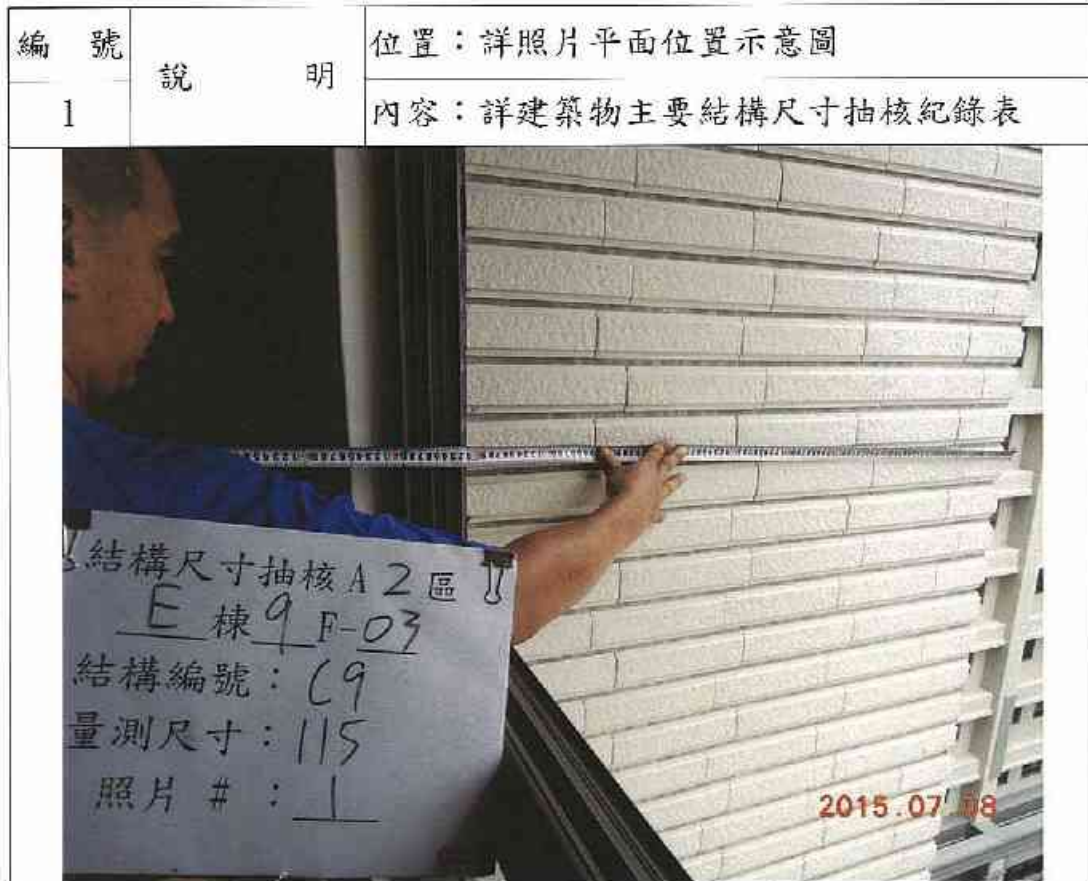 編 號
說 明
位置：詳照片平面位置示意圖
1
內容：詳建築物主要結構尺寸抽核紀錄表
結構尺寸抽核A2區
E棟9F-03
結構編號：C9
量測尺寸：115
照片#：1
2015.07.08